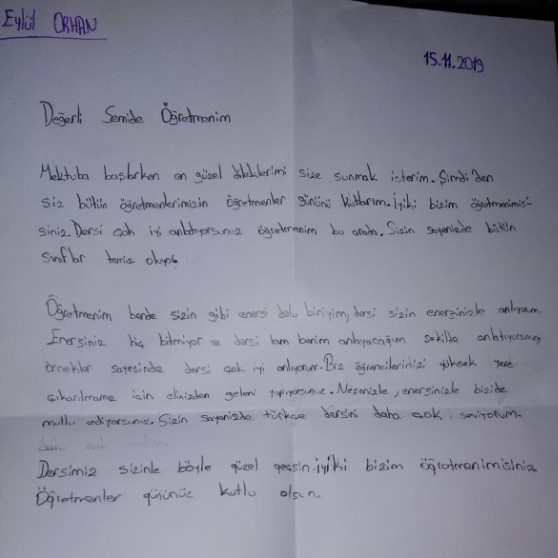 Eylül ORHAN
15.11.2019
Değerli Semide Öğretmenim
Mektuba başlarken en güzel dileklerimi size sunmak isterim. Şimdi'den
siz bütün öğretmenlerimizin öğretmenler gününü kutlarım. İyiki bizim öğretmenimiz-
siniz. Dersi çok iyi anlatıyorsunuz öğretmenim bu arada. Sizin sayenizde bütün
sınıflar temiz oluyor
Öğretmenim bende sizin gibi enerji dolu biriyim, dersi sizin enerjinizle anlıyorum
Enerjiniz hiç bitmiyor ve dersi tam benim anlayacağım şekilde anlatıyorsunuz
örnekler sayesinde dersi çok iyi anlıyorum. Biz öğrencilerinizi yüksek yere
çıkarılmame için elinizden geleni yapıyorsunuz. Neşenizle, enerjinizle bizide
mutlu ediyorsunuz. Sizin sayenizde türkçe dersini daha çok seviyorum.
Dersimiz sizinle böyle güzel geçsin. iyiki bizim öğretmenimisiniz
Öğretmenler gününüz kutlu olsun